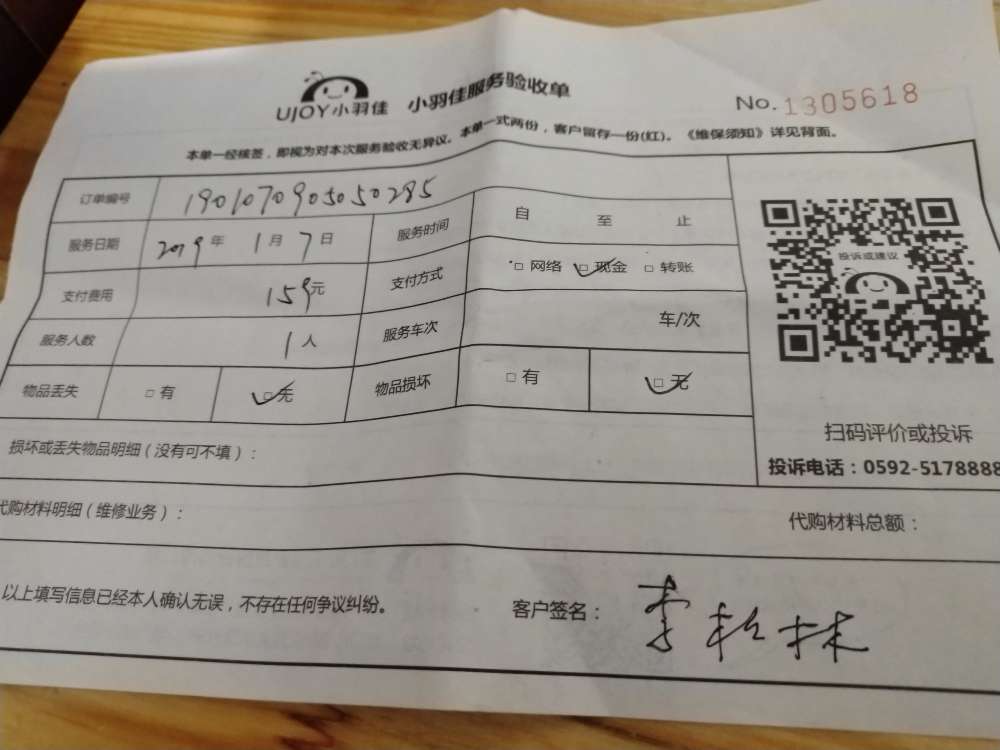 UJOY小羽佳 小羽佳服务验收单 No. 1305618
本单一经核签，即视为对本次服务验收无异议。本单一式两份，客户留存一份(红)。《维保须知》详见背面。
订单编号 190107090505050285
服务日期 2019年 1月 7日 服务时间 自 至 止
支付费用 159元 支付方式 □网络 □现金 □转账
服务人数 1人 服务车次 车/次
物品丢失 □有 □无 物品损坏 □有 □无
投诉或建议
扫码评价或投诉
投诉电话：0592-5178888
损坏或丢失物品明细（没有可不填）：
代购材料明细（维修业务）： 代购材料总额：
以上填写信息已经本人确认无误，不存在任何争议纠纷。 客户签名： 李松林